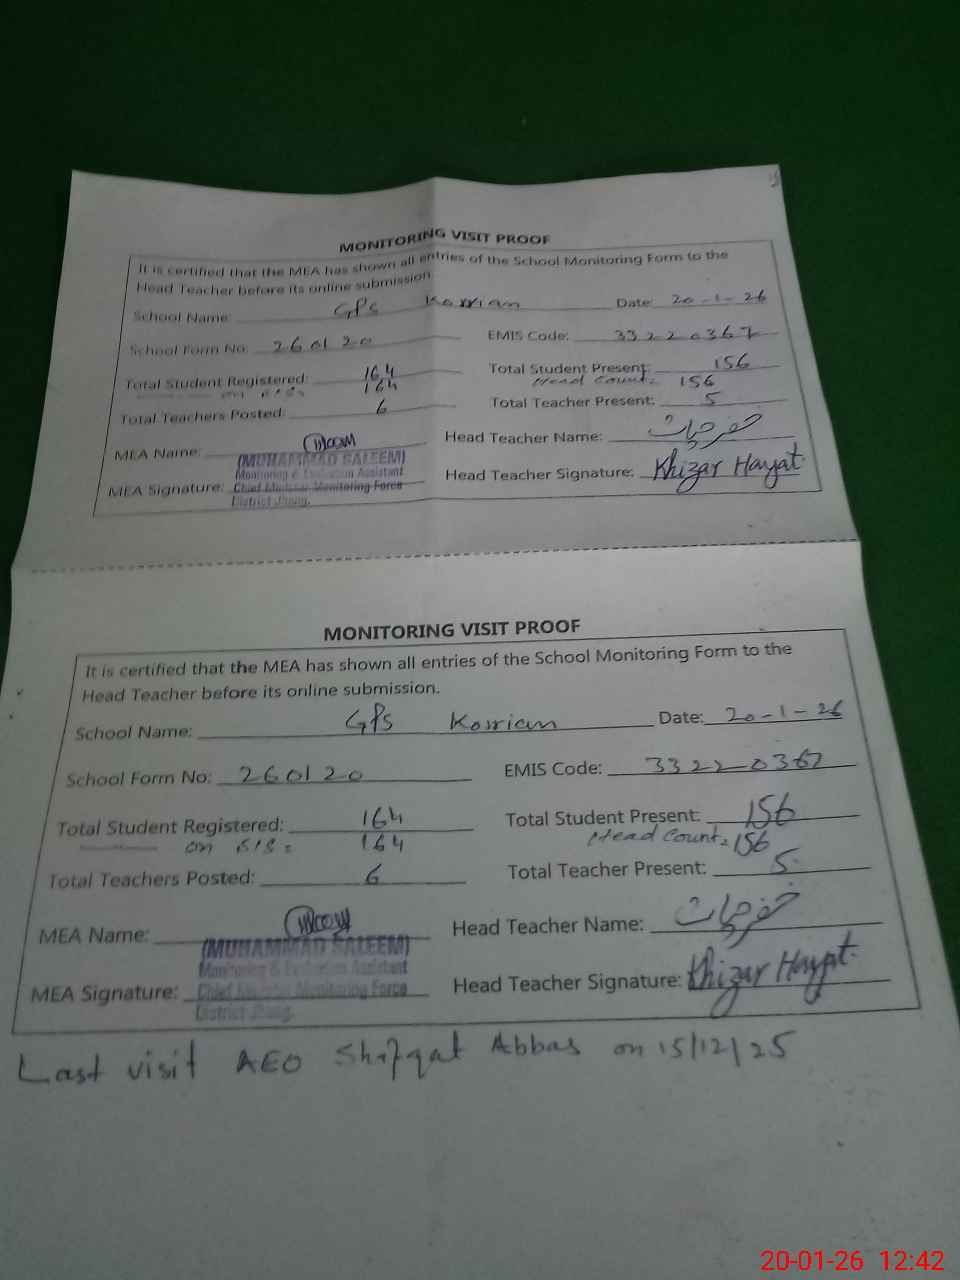 MONITORING VISIT PROOF
It is certified that the MEA has shown all entries of the School Monitoring Form to the
Head Teacher before its online submission.
School Name: GPS Korrian Date: 20-1-26
School Form No: 260120 EMIS Code: 33220367
Total Student Registered: 164 Total Student Present: 156
on SIS: 164 Head Count: 156
Total Teachers Posted: 6 Total Teacher Present: 5
MEA Name: Head Teacher Name: خضر حیات
(MUHAMMAD SALEEM)
Monitoring & Evaluation Assistant
MEA Signature: Chief Minister Monitoring Force Head Teacher Signature: Khizar Hayat
District Jhang.
MONITORING VISIT PROOF
It is certified that the MEA has shown all entries of the School Monitoring Form to the
Head Teacher before its online submission.
School Name: GPS Korrian Date: 20-1-26
School Form No: 260120 EMIS Code: 33220367
Total Student Registered: 164 Total Student Present: 156
on SIS = 164 Head Count = 156
Total Teachers Posted: 6 Total Teacher Present: 5
MEA Name: Head Teacher Name: خضر حیات
(MUHAMMAD SALEEM)
Monitoring & Evaluation Assistant
MEA Signature: Chief Minister Monitoring Force Head Teacher Signature: Khizar Hayat
District Jhang.
Last visit AEO Shafqat Abbas on 15/12/25
20-01-26 12:42